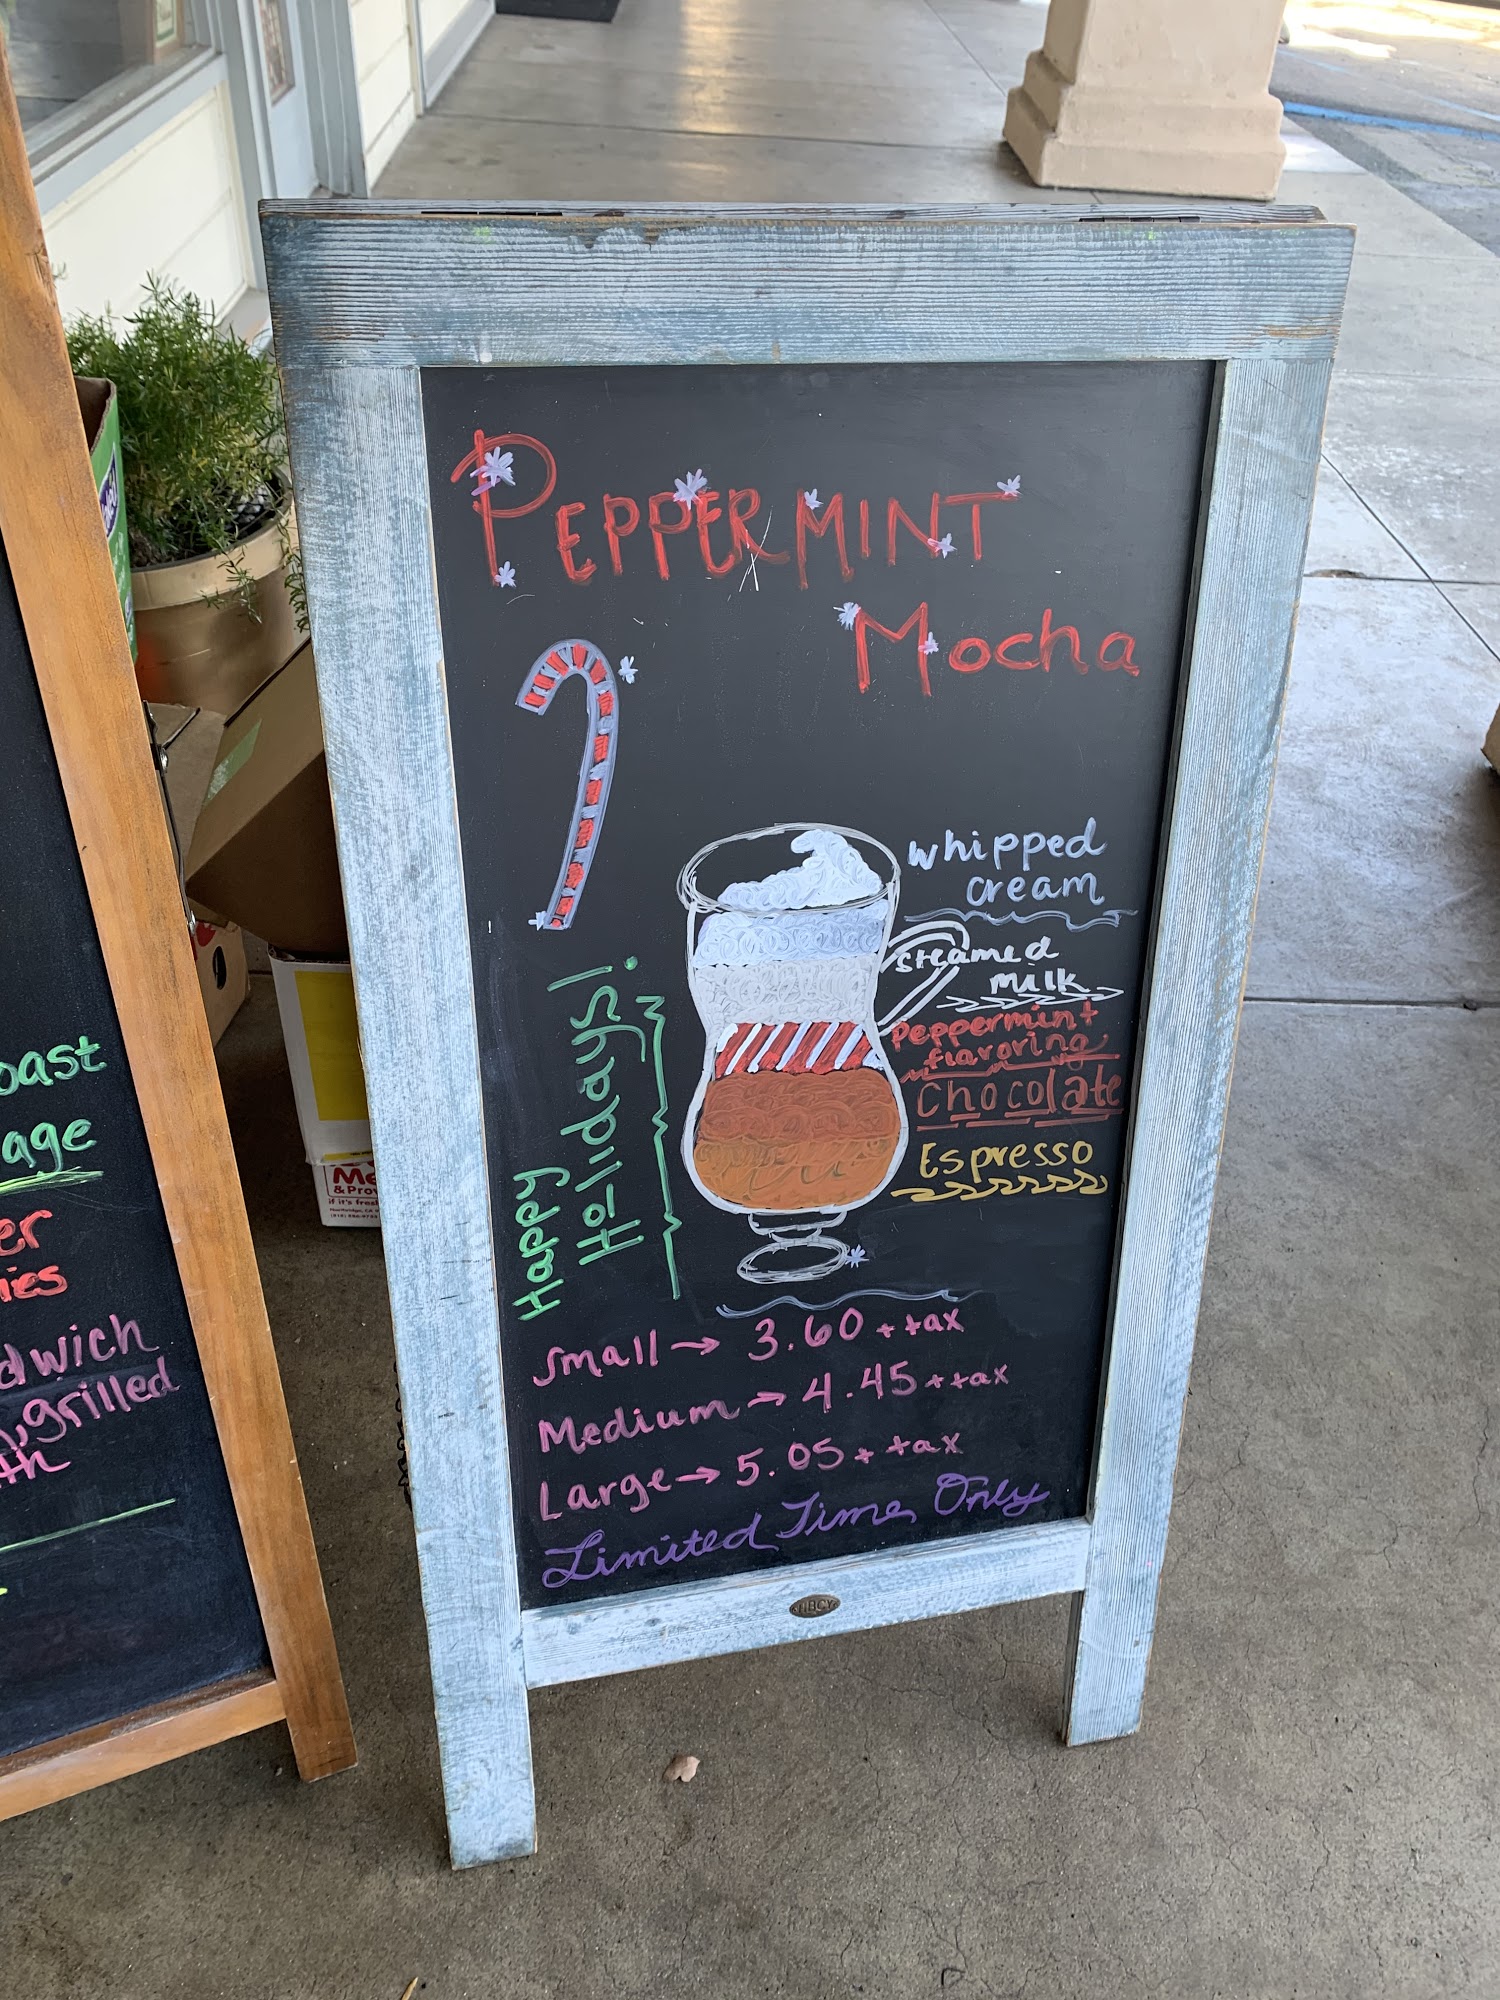 PEPPERMINT
Mocha
whipped
cream
steamed
milk
Peppermint
flavoring
Chocolate
Espresso
Happy
Holidays!
Small → 3.60 + tax
Medium → 4.45 + tax
Large → 5.05 + tax
Limited Time Only
HBCY
oast
age
er
ies
dwich
grilled
th
Me
& Pro
if it's fres